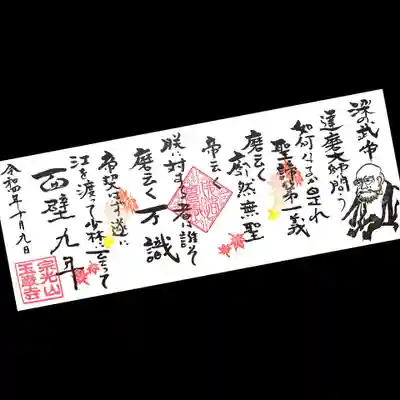 梁の武帝
達磨大師に問う
如何なるか是れ
聖諦第一義
磨云く
廓然無聖
帝云く
朕に対する者は誰そ
磨云く不識
帝契はず遂に
江を渡って少林に至って
面壁九年
令和四年十月九日